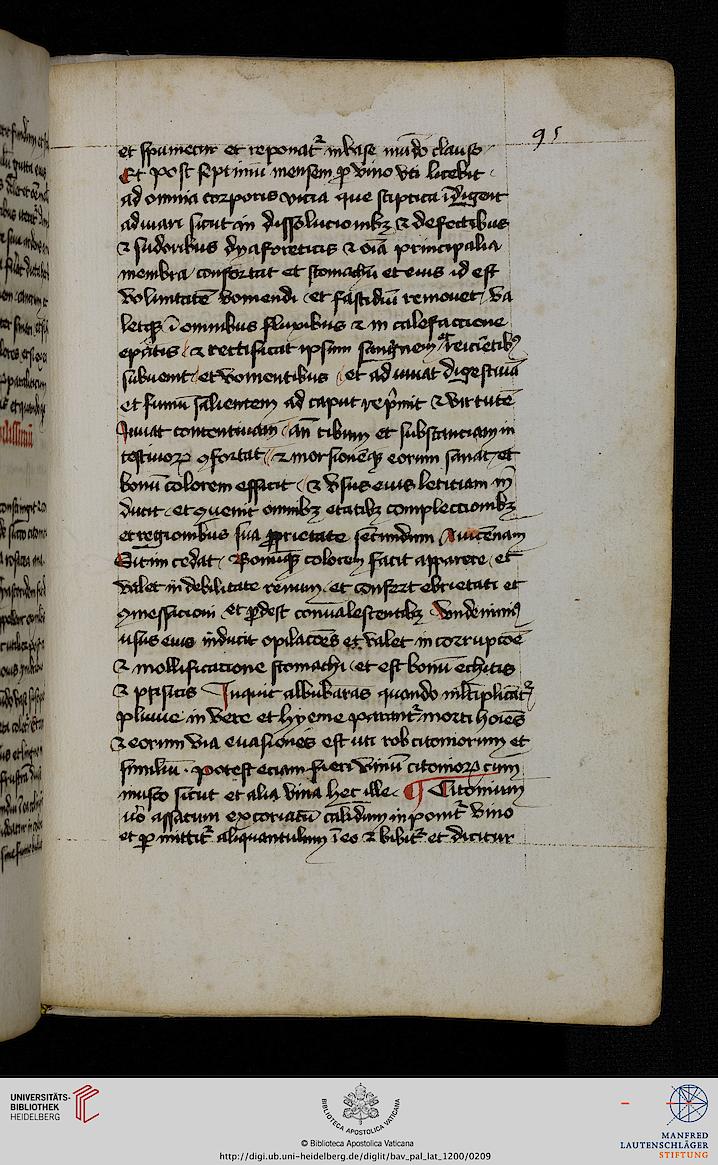 95
et spumetur et reponatr̄ in vase mūdo clauso
Et post septimū mensem ꝑ vino vti licebit
ad omnia corporis vicia que stiptica īdigent
adiuuari sicut in dissolucionibꝫ ⁊ defectibus
⁊ sudoribus dyaforeticis ⁊ oīa principalia
membra confortat et stomachū et eius id est
voluntatē vomendi et fastidiū remouet va
letqꝫ ī omnibus fluxibus ⁊ in calefaccione
epatis ⁊ rectificat ipsum sanguinem
subuenit et vomentibus et adiuuat digestiuā
et fumū salientem ad caput rep̄mit ⁊ virtutē
Iuuat contentiuam an cibum et substanciam in
testinorꝝ ꝯfortat ⁊ morsionēqꝫ eorum sanat et
bonū colorem efficit ⁊ vsus eius leticiam in
ducit et ꝯuenit omnibꝫ etatibꝫ compleccionibꝫ
et regionibus sua ꝓprietate secundum Auicenam
Sitim cedat Bonūqꝫ colorem facit apparere et
valet in debilitate renum et confert ebrietati et
et ꝓdest conualescentibꝫ
usus eius inducit opilacōes et valet in corrupcōe
⁊ mollificacione stomachi et est bonū echitis
⁊ ptisicis Inquit albubaras quando ml̄tiplicātr̄
pluuie in vere et hyeme parantr̄ morti hoīes
⁊ eorum via euasionis est uti rob citoniorum et
similiū potest eciam fieri vinū citoniorꝝ cum
musto sicut et alia vina hec ille ¶ Citonium
u̇o assatum excoriatū calidum inponitr̄ vino
et ꝑmittitr̄ aliquantulum ī eo ⁊ bibitr̄ et dicitur
UNIVERSITÄTS-
BIBLIOTHEK
HEIDELBERG
BIBLIOTECA APOSTOLICA VATICANA
© Biblioteca Apostolica Vaticana
http://digi.ub.uni-heidelberg.de/diglit/bav_pal_lat_1200/0209
MANFRED
LAUTENSCHLÄGER
STIFTUNG